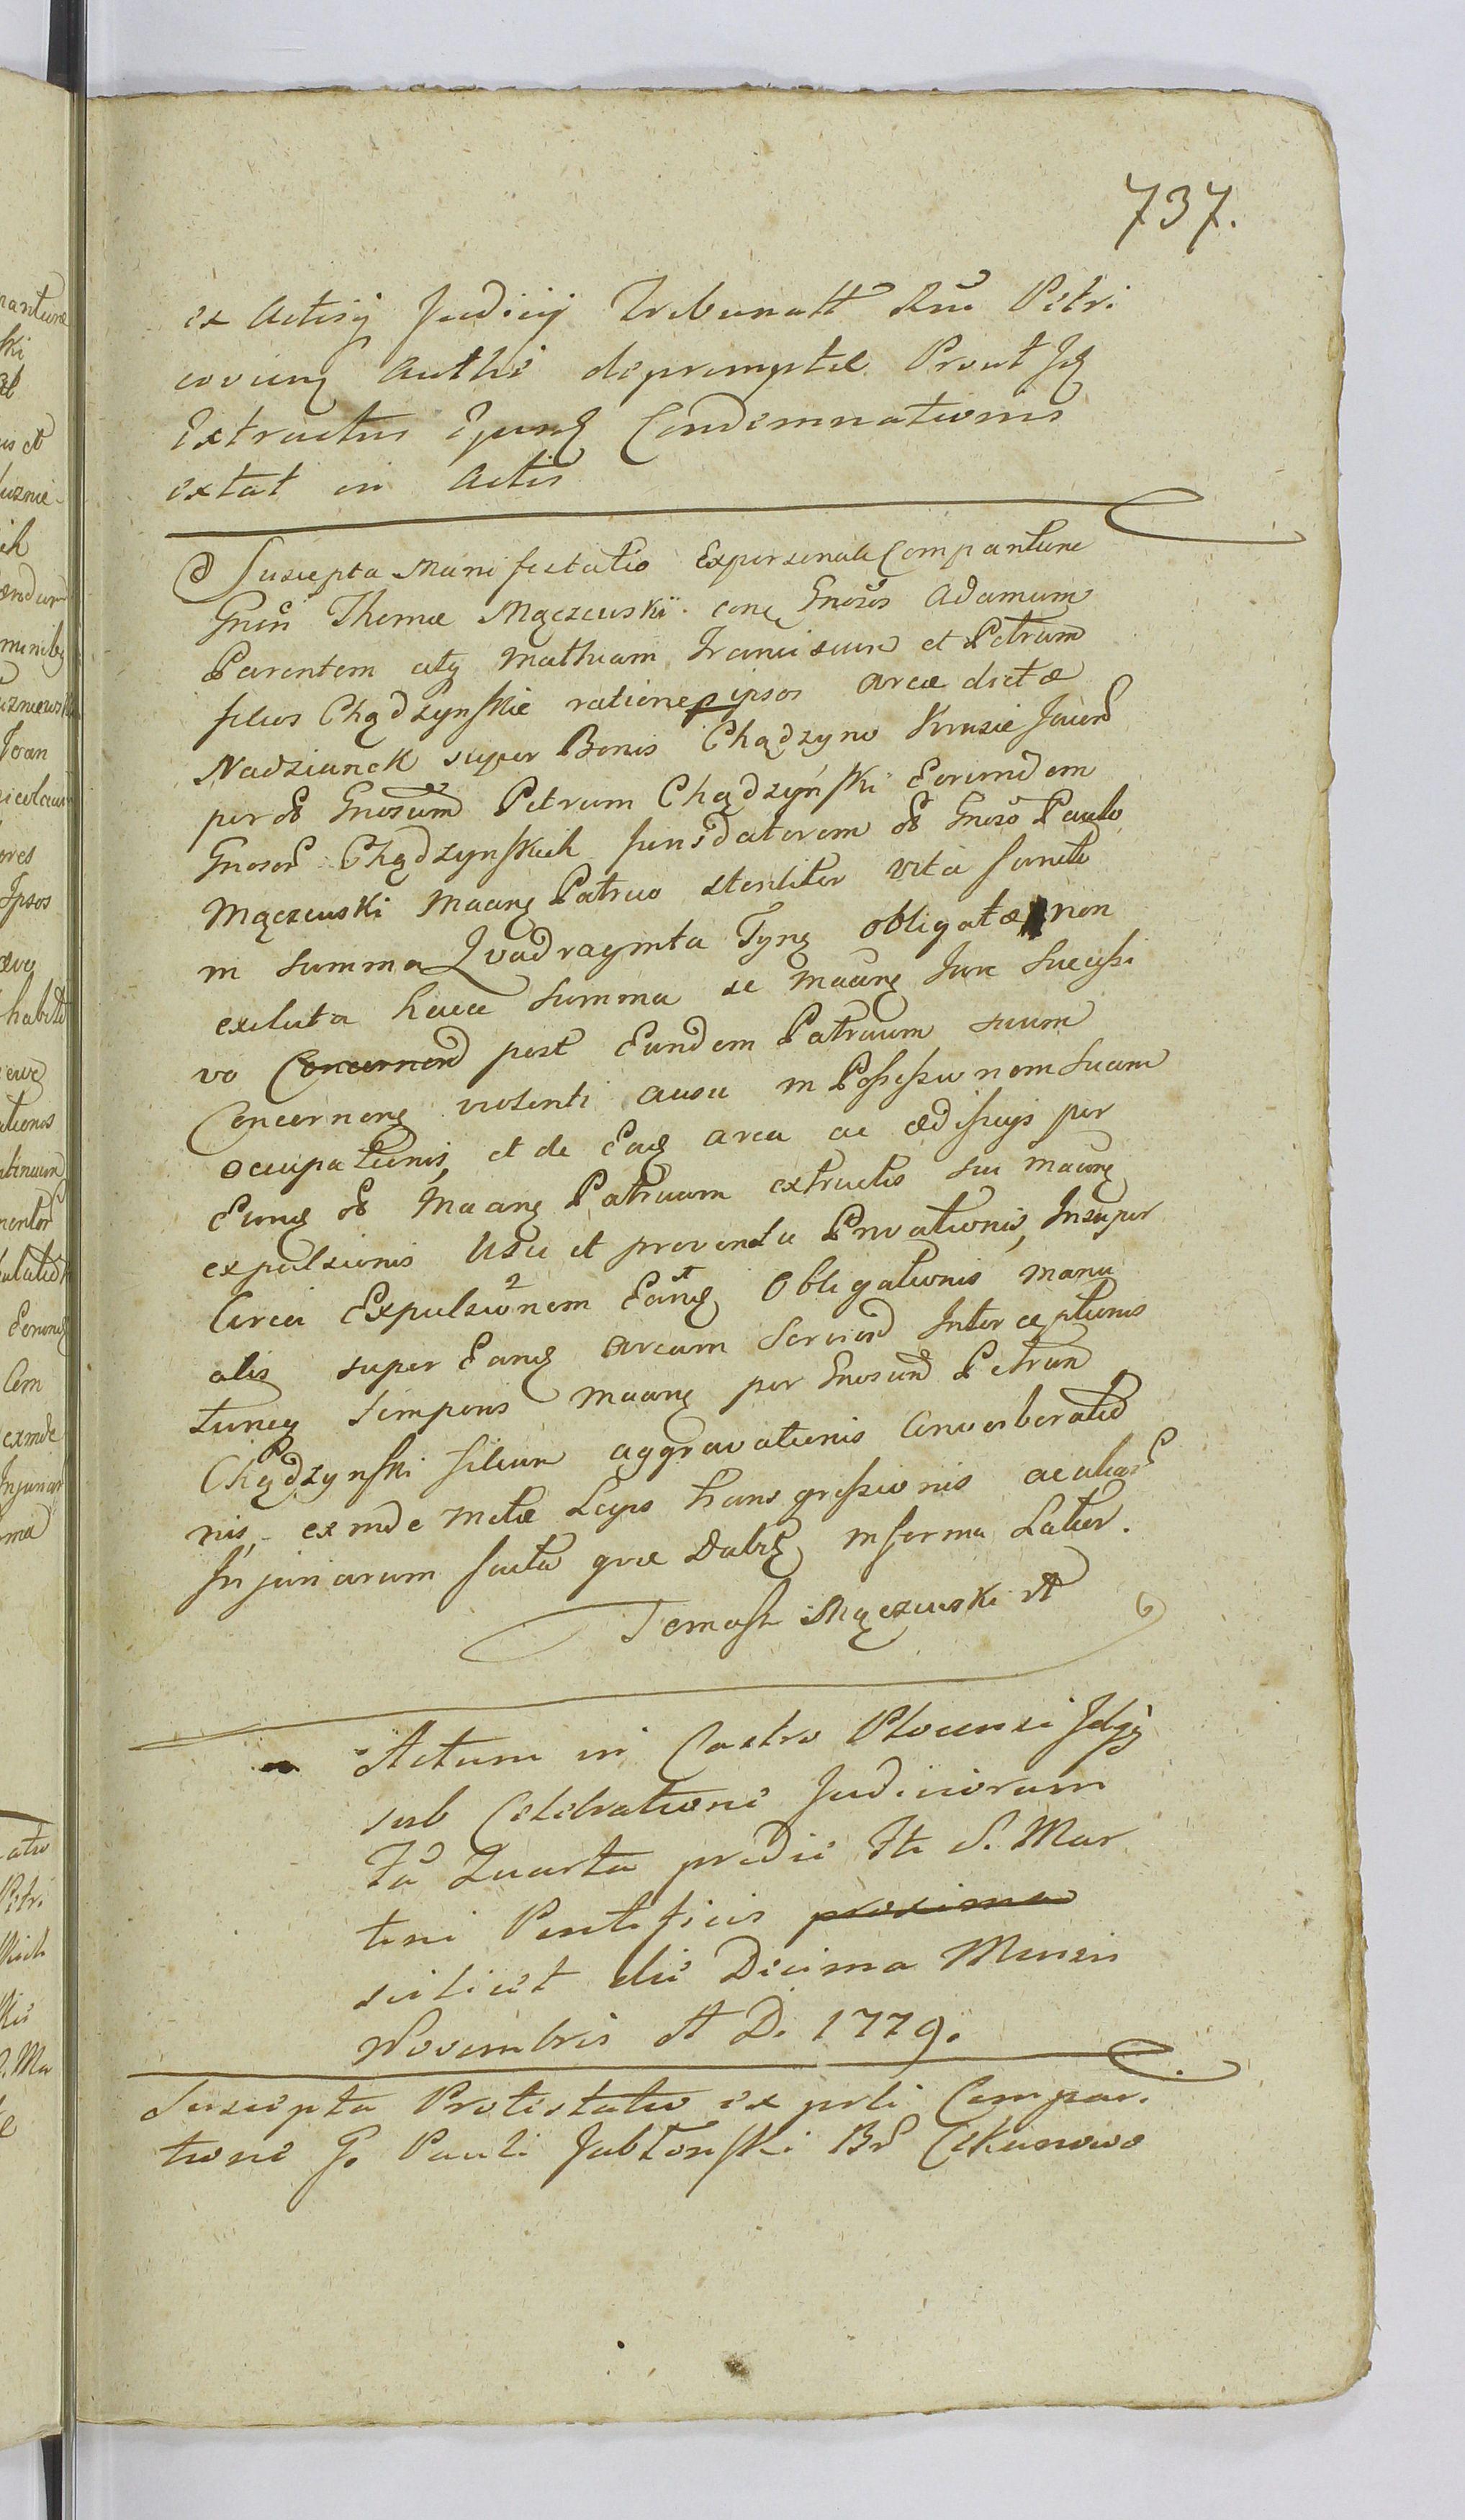 737.
ex Actis Judicij Tribunalt Rni Petri
coviens authe depromptae Prout Jd
Extractus Ejusd Condemnationis
extat in Actis
Suscepta Manifestatio Expersonali Compantione
Gnsi Thomæ Mączewski conq Gnosos Adamum
Parentem atq Mathiam Franciscum et Petrum
filios Chądzynskie ratione p ipsos areæ dictæ
Nadzianek super Bonis Chądzyno Krusie Jacend
per olt Gnosum Petrum Chądzyński Eorundem
Gnosor Chądzynskich olt Gnoso Paulo
Mączewski Maang Patruo steriliter vita functo
in summa Quadraginta Tyng obligatæ non
exoluta hacce summa se Maang Jure Sucessi
vo Concernend post Eundem Patruum suum
Concerneng violenti ausu in Possessionem suam
occupationis, et de Eaq area ac ædificijs per
Eunq olt Maang Patruum extructis sui Maang
expulsionis usu et proventu Privationis, Insuper
Circa Expulsionem Eandq Obligationis manu
alis super Eanq aream Serviend Interceptionis
tuncq temporis Maang per Gnosum Petrum
Chądzynski filium aggravationis Converberatio
nis, exinde metæ Legis transgressionis aealiar
Injuriarum facta quæ Dabit informa Latior.
Tomasz Mączewski
Actum in Castro Plocensi Jdqz
sub Celebratione Judiciorum
Fa Quarta pridie Fti S. Mar
tini Pontificis proxima
scilicet die Decima Mensis
Novembris A D. 1779.
Suscepta Protestatio ex prli Compar.
tione G. Pauli Jabłonski Bd Cekanowo